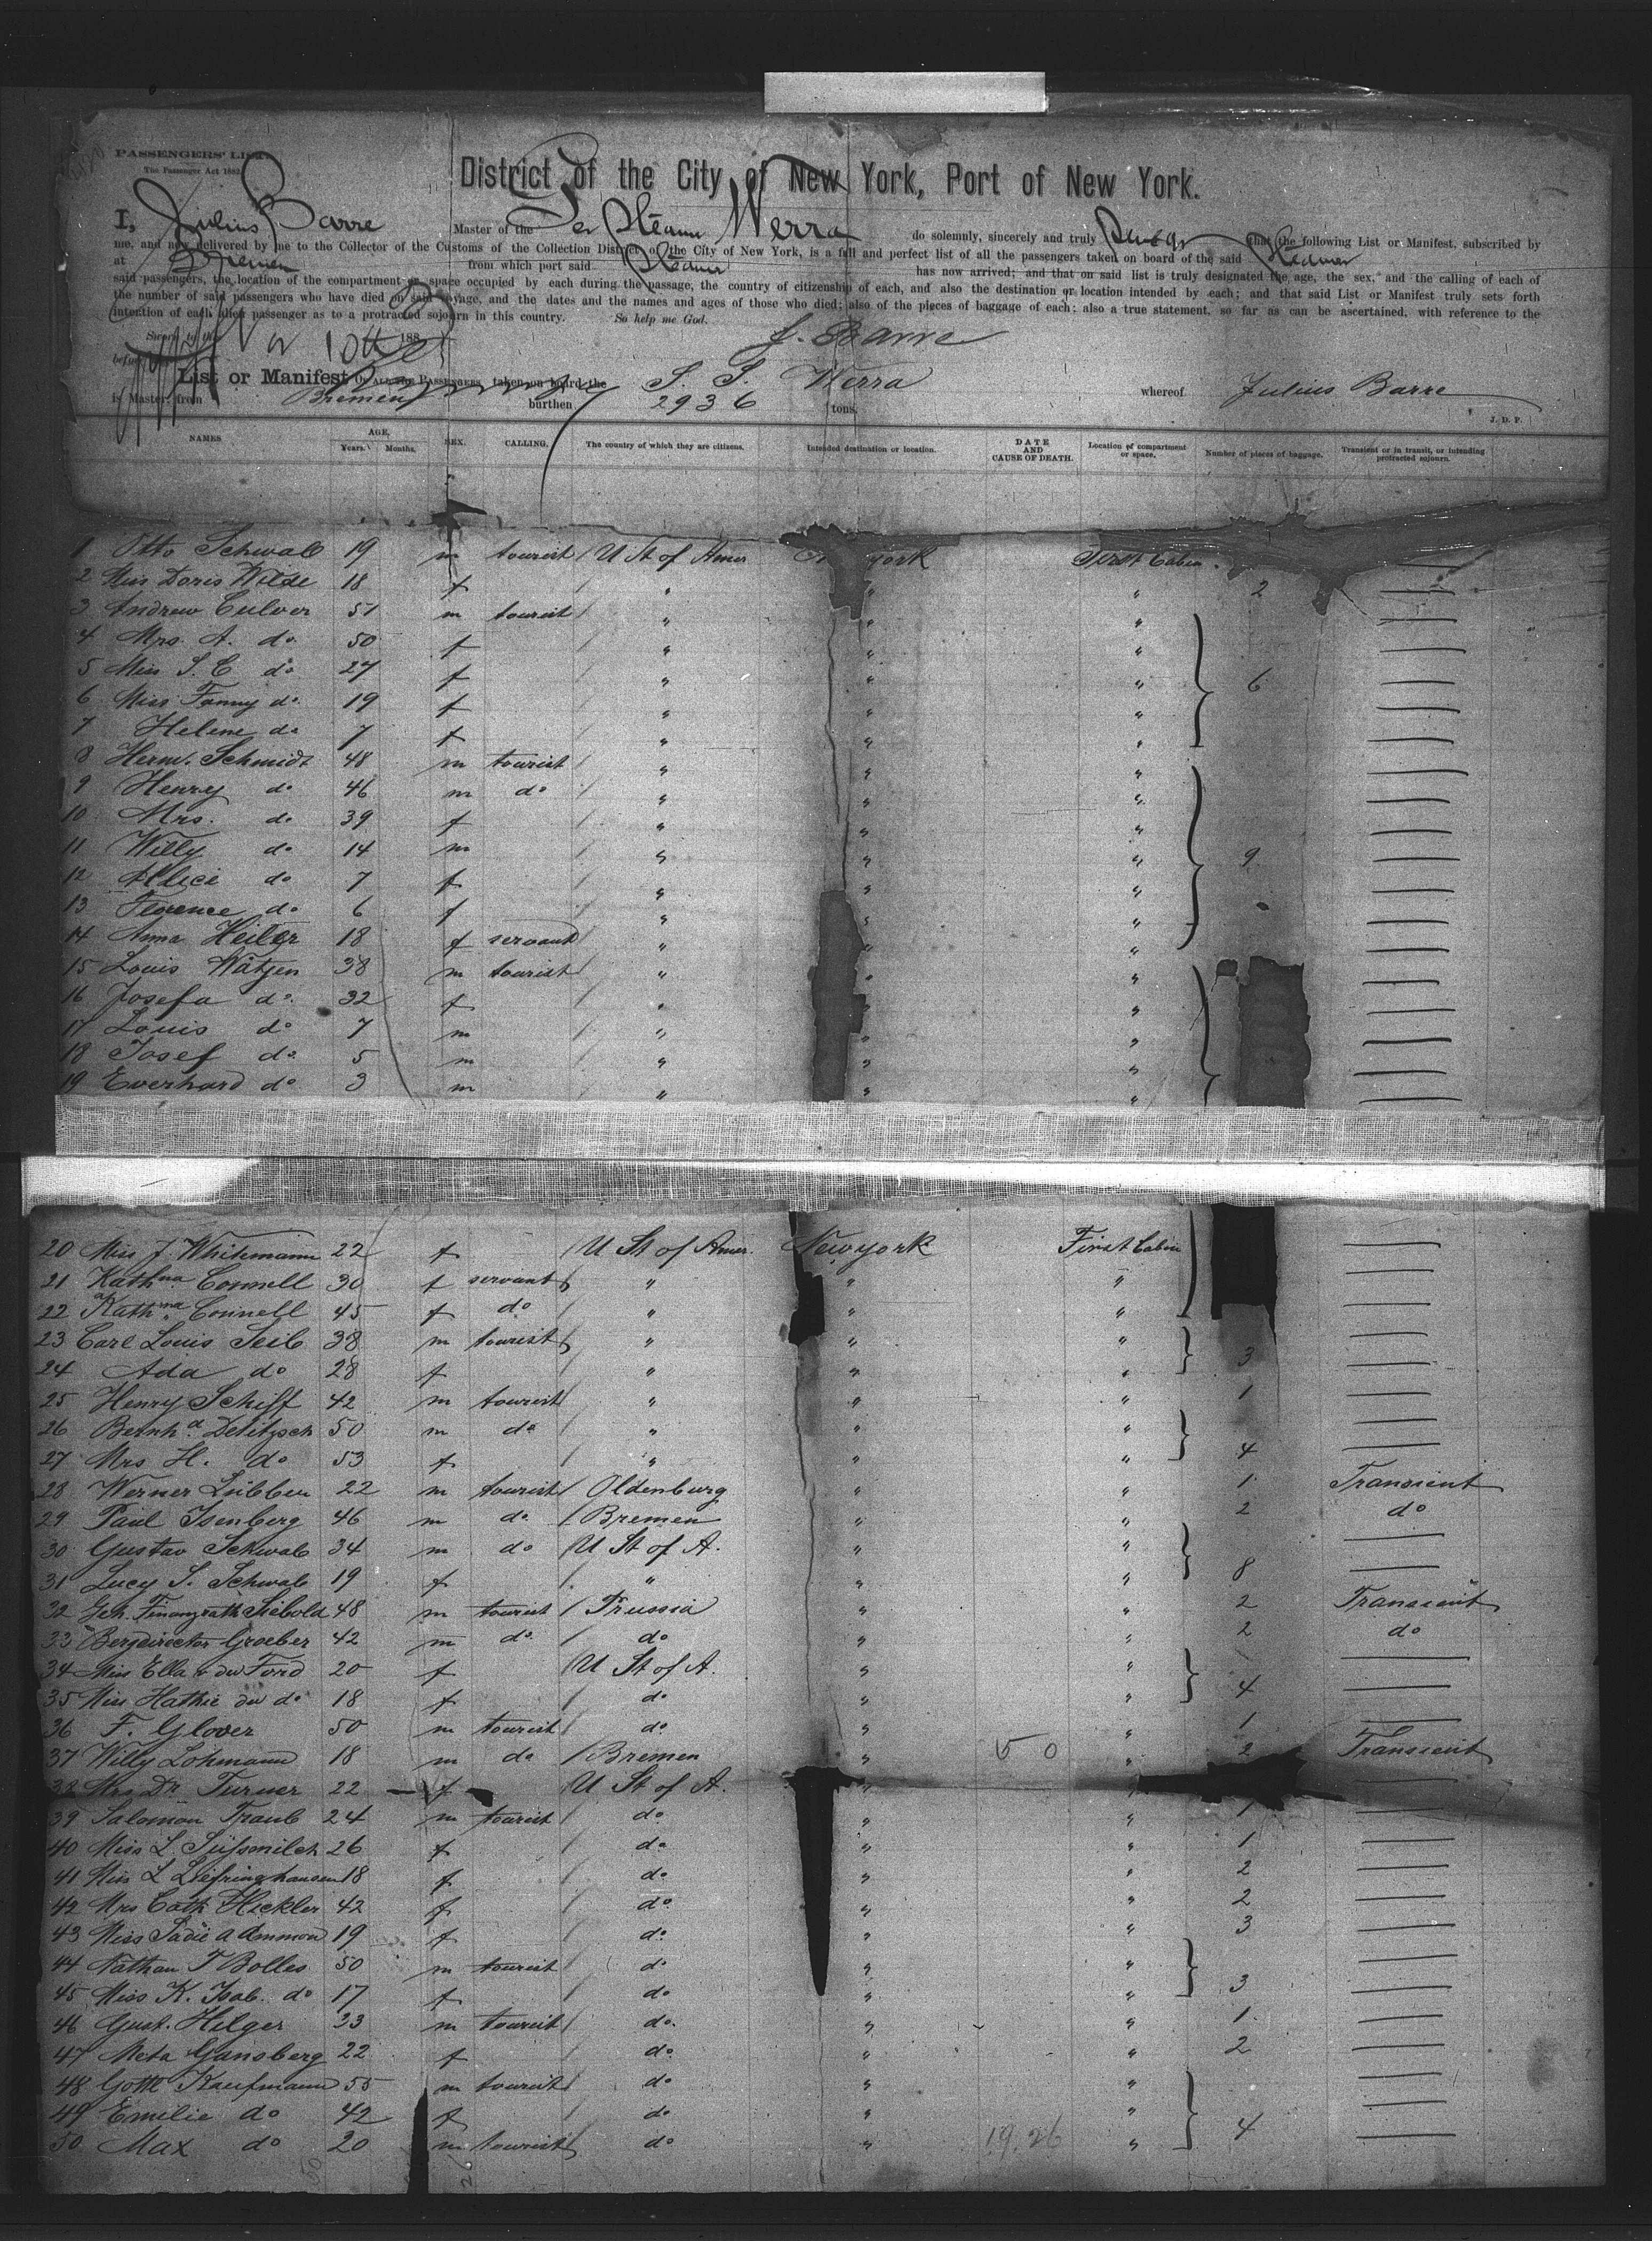 PASSENGERS' LIST
The Passenger Act 1882
District of the City of New York, Port of New York.
I, Julius Barre Master of the Ger Steam Werra do solemnly, sincerely and truly swear that the following List or Manifest, subscribed by
me, and now delivered by me to the Collector of the Customs of the Collection District of the City of New York, is a full and perfect list of all the passengers taken on board of the said Steamer
at Bremen from which port said Steamer has now arrived; and that on said list is truly designated the age, the sex, and the calling of each of
said passengers, the location of the compartment or space occupied by each during the passage, the country of citizenship of each, and also the destination or location intended by each; and that said List or Manifest truly sets forth
the number of said passengers who have died on said voyage, and the dates and the names and ages of those who died; also of the pieces of baggage of each; also a true statement, so far as can be ascertained, with reference to the
intention of each alien passenger as to a protracted sojourn in this country. So help me God.
Sworn to this 10th 188
before J. Barre
List or Manifest OF ALL THE PASSENGERS taken on board the S. S. Werra whereof Julius Barre
is Master, from Bremen burthen 2936 tons.
J. D. P.
NAMES AGE, Years. Months. SEX. CALLING. The country of which they are citizens. Intended destination or location. DATE AND CAUSE OF DEATH. Location of compartment or space. Number of pieces of baggage. Transient or in transit, or intending protracted sojourn.
1 Otto Schwab 19 m tourist U St of Amer York First Cabin —
2 Miss Doris Wilde 18 f " " " 2 —
3 Andrew Culver 51 m tourist " " " —
4 Mrs. A. do 50 f " " " —
5 Miss S. C do 27 f " " " 6 —
6 Miss Fanny do 19 f " " " —
7 Helene do 7 f " " " —
8 Herm. Schmidt 48 m tourist " " " —
9 Henry do 46 m do " " " —
10 Mrs. do 39 f " " " —
11 Willy do 14 m " " " 9 —
12 Allice do 7 f " " " —
13 Florence do 6 f " " " —
14 Anna Heiler 18 f servant " " " —
15 Louis Wätjen 38 m tourist " " " —
16 Josefa do 32 f " " " —
17 Louis do 7 m " " " —
18 Josef do 5 m " " " —
19 Everhard do 3 m " " " —
20 Miss J. Whitmann 22 f U St of Amer. New york First Cabin —
21 Kathna Connell 30 f servant " " " —
22 Kathna Connell 45 f do " " " —
23 Carl Louis Seib 38 m tourist " " " —
24 Ada do 28 f " " " 3 —
25 Henry Schiff 42 m tourist " " " 1 —
26 Bernhd Delitzsch 50 m do " " " —
27 Mrs H. do 53 f " " " 4 —
28 Werner Lübben 22 m tourist Oldenburg " " 1 Transient
29 Paul Isenberg 46 m do Bremen " " 2 do
30 Gustav Schwab 34 m do U St of A. " " —
31 Lucy S. Schwab 19 f " " " 8 —
32 Geh. Finanzrath Siebold 48 m tourist Prussia " " 2 Transient
33 Bergdirector Groeber 42 m do do " " 2 do
34 Miss Ella v du Ford 20 f U St of A. " " —
35 Miss Hathie du do 18 f do " " 4 —
36 F. Glover 50 m tourist do " " 1 —
37 Willy Lohmann 18 m do Bremen " 50 " 2 Transient
38 Mrs Dr. Turner 22 f U St of A. "
39 Salomon Traub 24 m tourist do " " 1 —
40 Miss L. Süssmilch 26 f do " " 1 —
41 Miss L Liefringhausen 18 f do " " 2 —
42 Mrs Cath Hickler 42 f do " " 2 —
43 Miss Sadie A Ammon 19 f do " " 3 —
44 Nathan T Bolles 50 m tourist do " " —
45 Miss K. Isab. do 17 f do " " 3 —
46 Gust. Hilger 33 m tourist do " " 1 —
47 Meta Gansberg 22 f do " " 2 —
48 Gottl Kaufmann 55 m tourist do " " —
49 Emilie do 42 f do " " 4 —
50 Max do 20 m tourist do " 19.26 " —